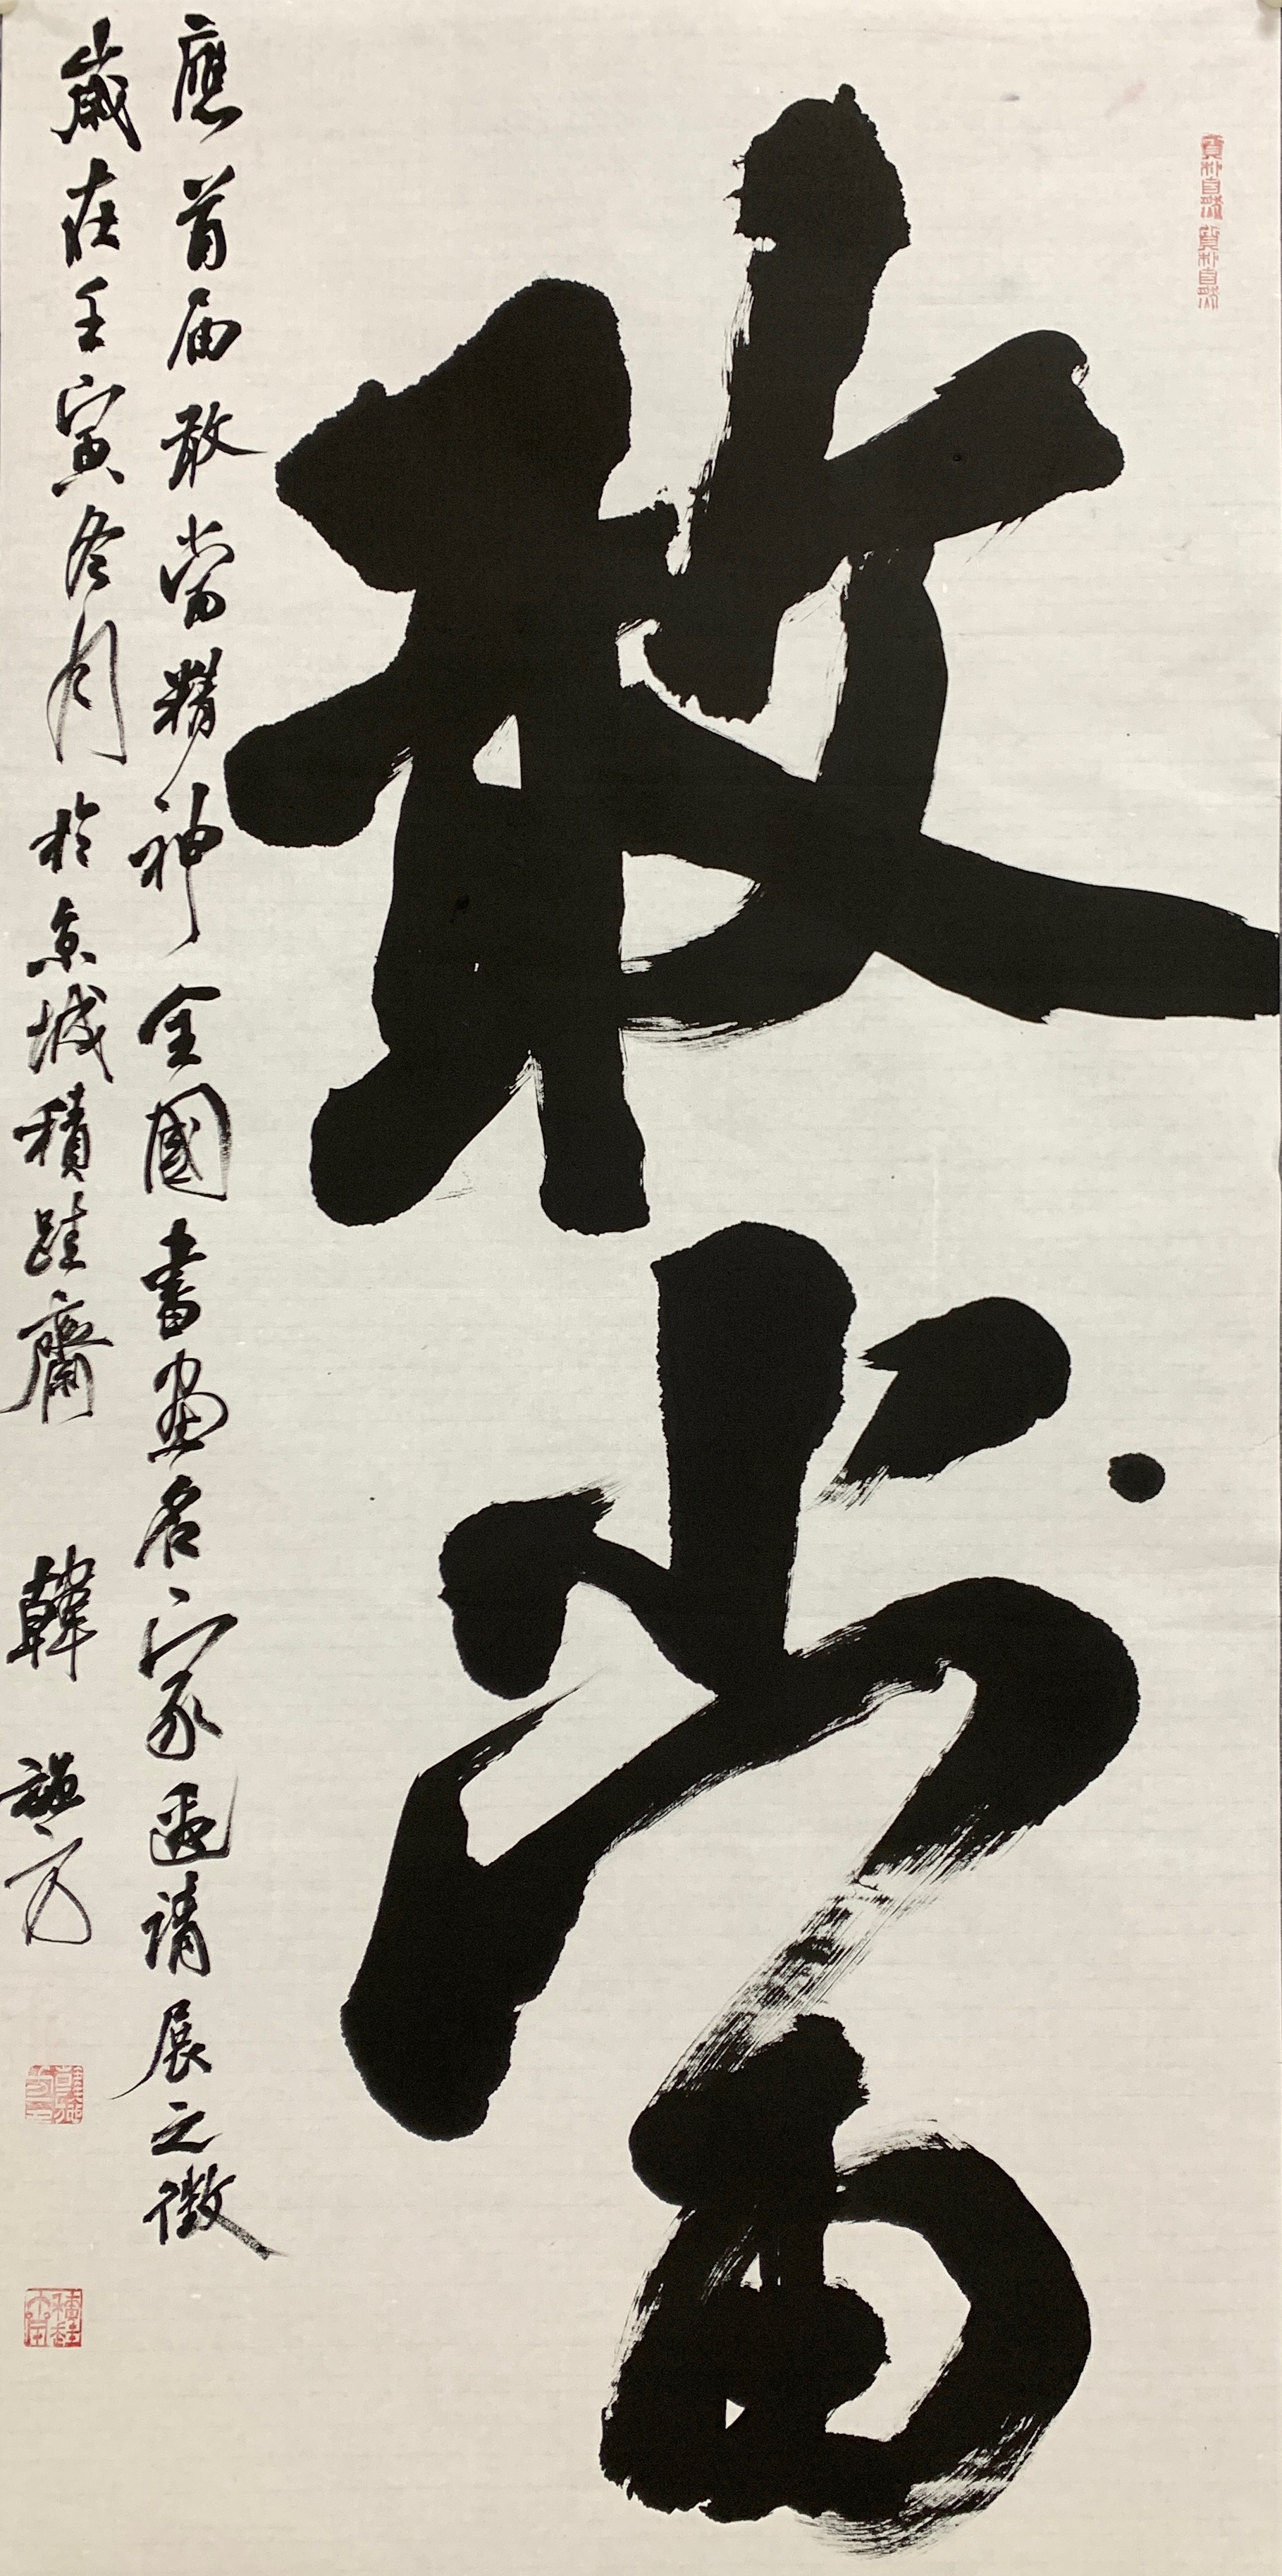 敢當
應首届敢當精神全國書畫名家邀請展之徵
歲在壬寅冬月於京城積跬齋 韓
質朴自然